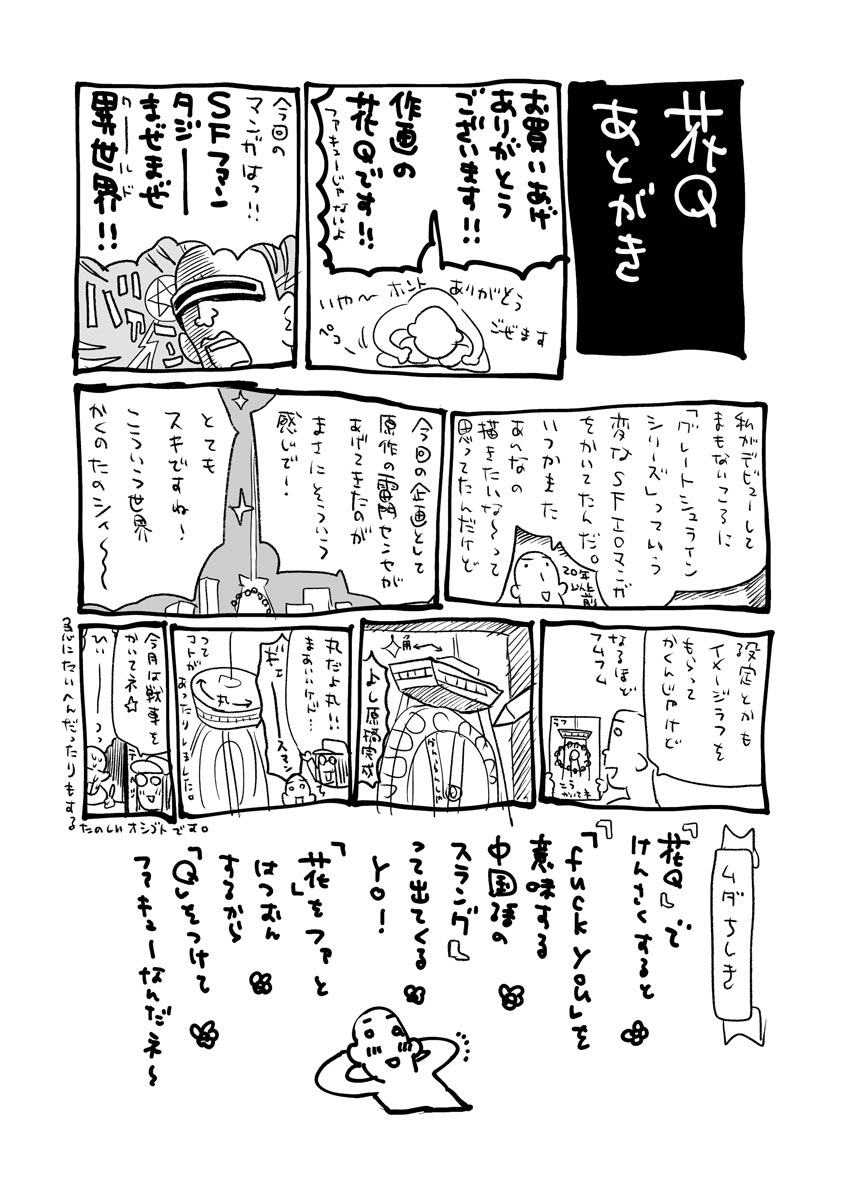 花Q
あとがき
お買いあげ
ありがとう
ございます!!
作画の
花Qです!!
ファキューじゃないよ
いや〜 ホント ありがとう
ござます
ペコ
今回の
マンガはっ!!
SFファン
タジー
まぜまぜ
異世界!!
ワールド
私がデビューして
まもないころに
「グレートシュライン
シリーズ」っていう
変なSFエロマンガ
をかいてたんだ。
いつかまた
あんなの
描きたいな〜って
思ってたんだけど
20年
以上前
今回の企画として
原作の雷門センセが
あげてきたのが
まさにそういう
感じで!
とても
スキですね!
こういう世界
かくのたのシィ〜〜
設定とかも
イメージラフを
もらって
かくんじゃけど
なるほど
フムフム
ラフ
こう
かいてネ
角
よし原稿完成
丸だよ丸!!
まあいいけど…
ギェー
スマン
丸
って
コトが
あったりしました。
今月は戦車を
かいてネ☆
ひぃーっ
急にたいへんだったりもする
たのしいオシゴトです。
ムダちしき
『花Q』で
けんさくすると
『「fuck you」を
意味する
中国語の
スラング』
って出てくる
yo!
「花」をファと
はつおん
するから
「Q」をつけて
ファキューなんだネ〜